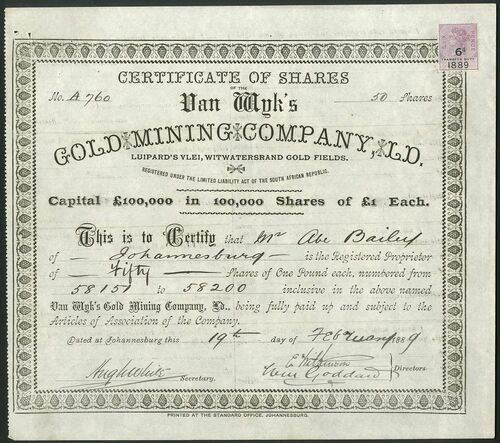 CERTIFICATE OF SHARES
OF THE
No. A 760 Van Wyk's 50 Shares
GOLD MINING COMPANY, LD.
LUIPARD'S VLEI, WITWATERSRAND GOLD FIELDS.
REGISTERED UNDER THE LIMITED LIABILITY ACT OF THE SOUTH AFRICAN REPUBLIC.
Capital £100,000 in 100,000 Shares of £1 Each.
This is to Certify that Mr Abe Bailey
of Johannesburg is the Registered Proprietor
of Fifty Shares of One Pound each, numbered from
58151 to 58200 inclusive in the above named
Van Wyk's Gold Mining Company, Ld., being fully paid up and subject to the
Articles of Association of the Company.
Dated at Johannesburg this 19th day of February 1889
Hugh White Secretary.
Wm Goddard Directors
PRINTED AT THE STANDARD OFFICE, JOHANNESBURG.
PENCE
6d
TRANSFER DUTY
1889